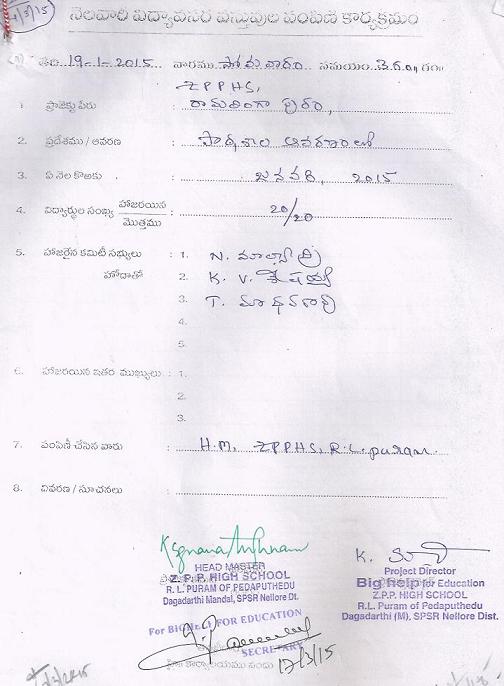 4/3/15
నెలవారి విద్యావసర వస్తువుల పంపిణి కార్యక్రమం
తేది 19-1-2015 వారము సోమవారం సమయం 3 గం॥ గం
ZPPHS,
1. ప్రాజెక్టు పేరు : రామలింగా పురం,
2. ప్రదేశము / ఆవరణ : పాఠశాల ఆవరణంలో
3. ఏ నెల కొఱకు : జనవరి, 2015
4. విద్యార్థుల సంఖ్య హాజరయిన / మొత్తము : 20/20
5. హాజరైన కమిటీ సభ్యులు : 1. N. మాల్యాద్రి
హోదాతో 2. K. V. శేషయ్య
3. T. మాధవరావు
4.
5.
6. హాజరయిన ఇతర ముఖ్యులు : 1.
2.
3.
7. పంపిణీ చేసిన వారు : H.M, ZPPHS, R.L. puram.
8. వివరణ / సూచనలు :
HEAD MASTER
Z.P.P. HIGH SCHOOL
R. L. PURAM OF PEDAPUTHEDU
Dagadarthi Mandal, SPSR Nellore Dt.
K.
Project Director
Big Help for Education
Z.P.P. HIGH SCHOOL
R.L. Puram of Pedaputhedu
Dagadarthi (M), SPSR Nellore Dist.
For BIG HELP FOR EDUCATION
SECRETARY
17/3/15